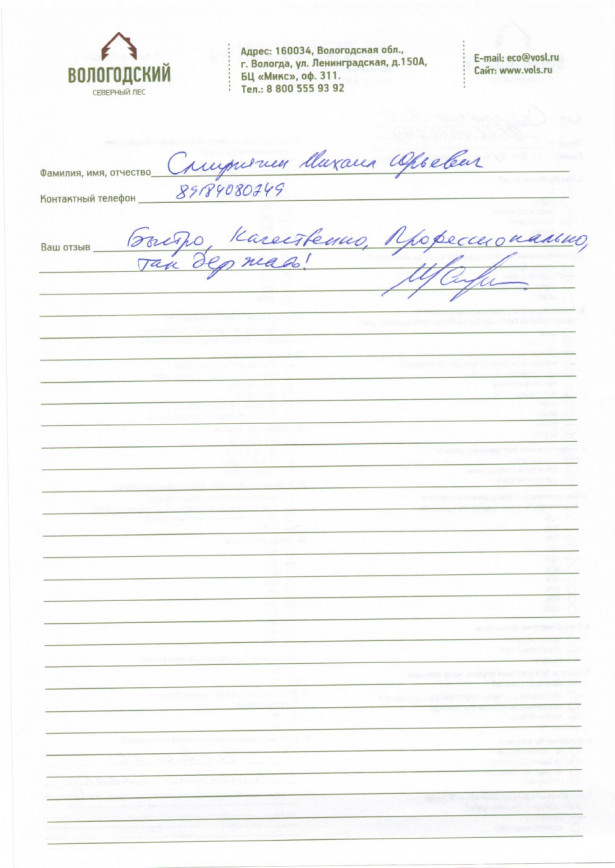 ВОЛОГОДСКИЙ
СЕВЕРНЫЙ ЛЕС
Адрес: 160034, Вологодская обл.,
г. Вологда, ул. Ленинградская, д.150А,
БЦ «Микс», оф. 311.
Тел.: 8 800 555 93 92
E-mail: eco@vosl.ru
Сайт: www.vols.ru
Фамилия, имя, отчество Михаил Юрьевич
Контактный телефон 89184080249
Ваш отзыв Быстро, Качественно, Профессионально,
так держать!